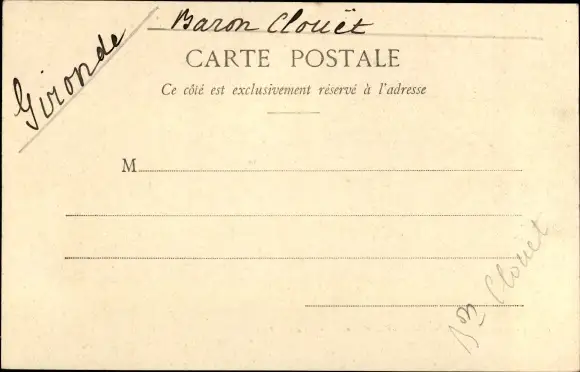 Baron Clouët
Gironde
CARTE POSTALE
Ce côté est exclusivement réservé à l'adresse
M
Bon Clouet